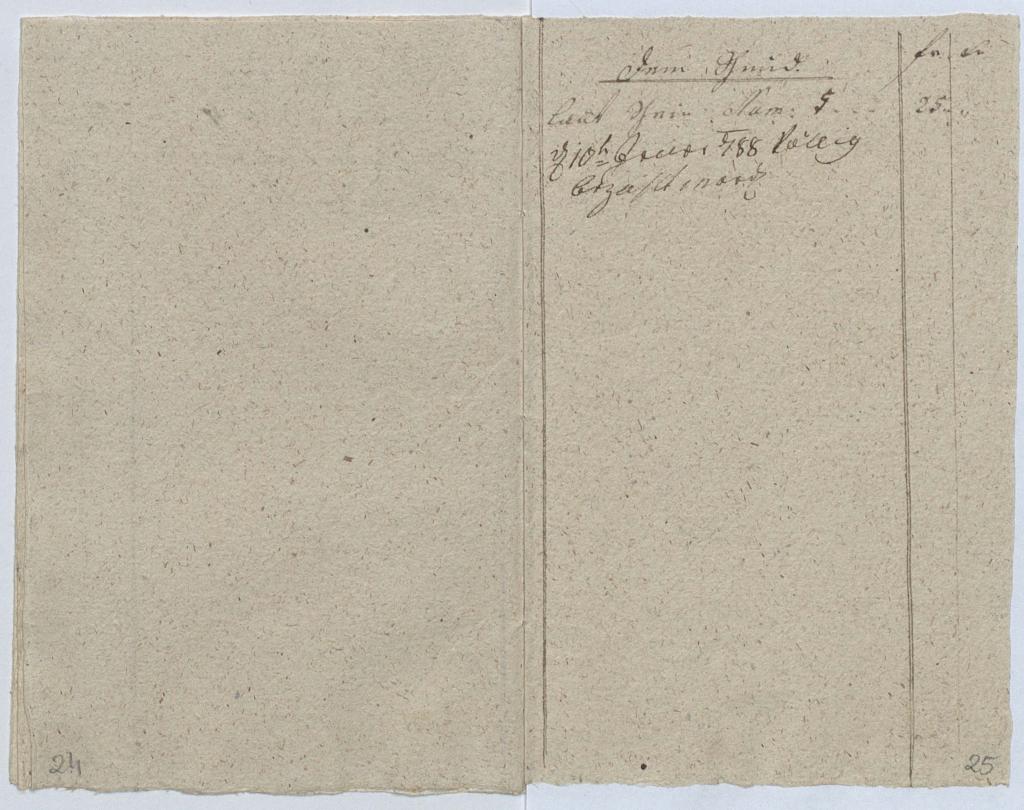 fr. xr.
Dem Schmid.
laut Schein Num: 5 25
d 10h Jenner 1788 Völlig
bezahlt word
24
25